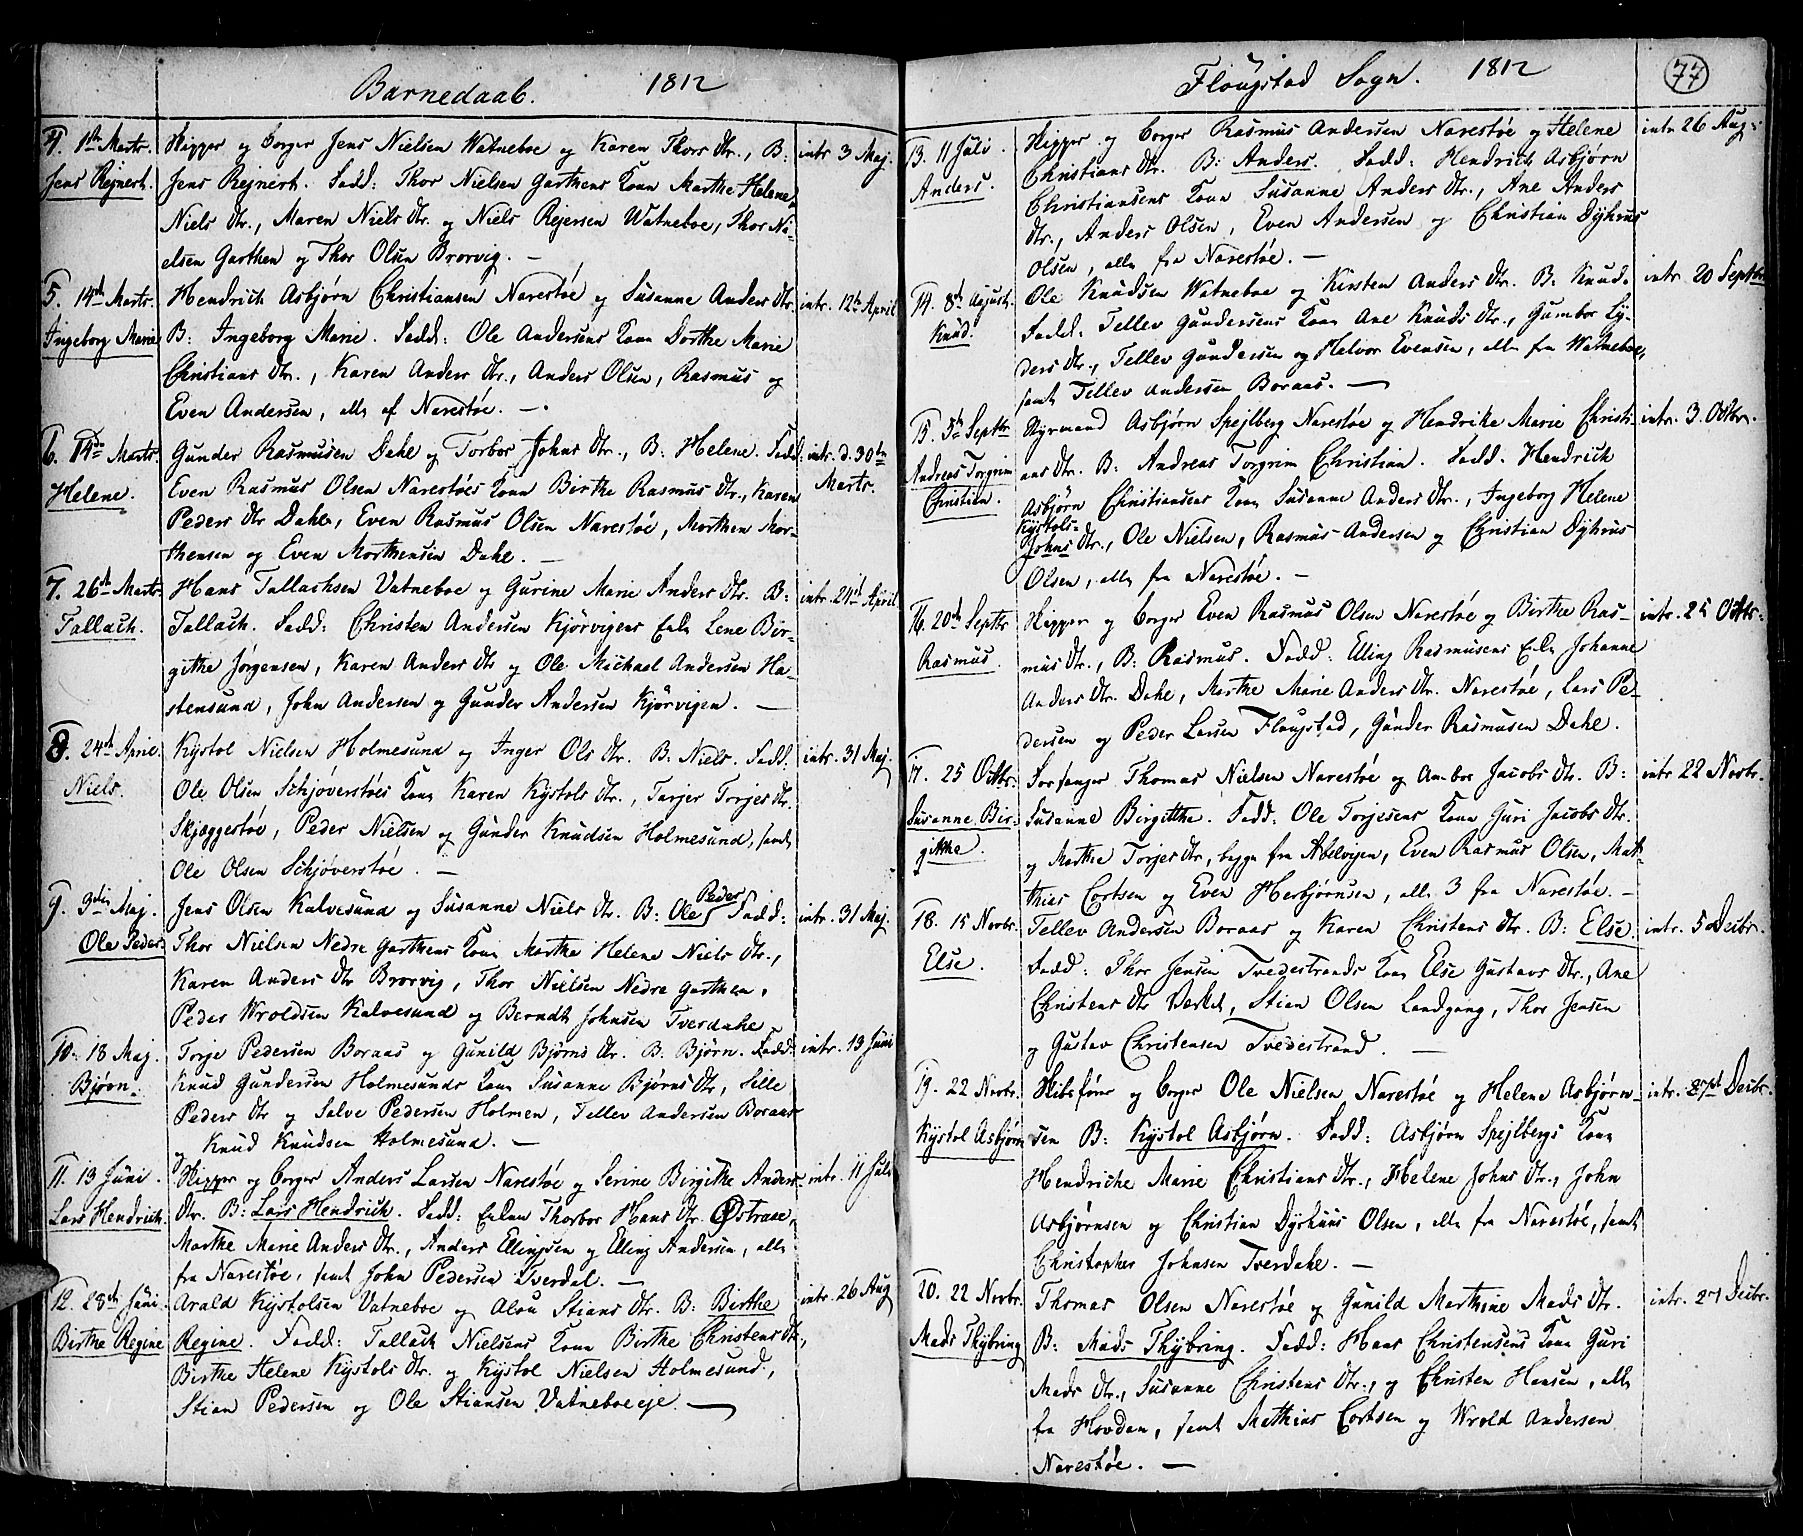 Barnedaab. 1812
4. 1ste Marts.
Jens Rejnert.
Skipper og borger Jens Nielsen Watneboe og Karen Thors Dtr., B:
Jens Rejnert. Fadd: Thor Nielsen Garthens Kone Marthe Helene
Niels Dtr., Maren Niels Dtr. og Niels Rejersen Watneboe, Thor Ni-
elsen Garthen og Thor Olsen Brorvig. —
intr. 3 Maj.
5. 14de Marts.
Ingeborg Marie
Hendrich Asbjørn Christiansen Narestøe og Susanne Anders Dtr.
B: Ingeborg Marie. Fadd: Ole Andersens Kone Dorthe Marie
Christians Dtr., Karen Anders Dtr., Anders Olsen, Rasmus og
Even Andersen, alle af Narestøe. —
intr. 12te April
6. 14de Marts.
Helene.
Gunder Rasmusen Dahe og Torbor Johns Dtr., B: Helene. Fadd:
Even Rasmus Olsen Narestøes Kone Birthe Rasmus Dtr., Karen
Peders Dtr Dahe, Even Rasmus Olsen Narestøe, Morthen Mor-
thensen og Even Morthensen Dahe. —
intr. d. 30te
Marts.
7. 26de Marts
Tallach.
Hans Tallachsen Vatneboe og Gurine Marie Anders Dtr. B:
Tallach. Fadd: Christen Andersen Kjörvigens Enke Lene Bir-
githe Jørgensen, Karen Anders Dtr og Ole Michael Andersen Ha-
stensund, John Andersen og Gunder Andersen Kjörvigen. —
intr. 24de April
8. 24de April.
Niels.
Kystol Nielsen Holmesund og Inger Ols Dtr. B: Niels. Fadd.
Ole Olsen Schjøverstøes Kone Karen Kystols Dtr., Tarjer Torjes Dtr.
Skjæggestøe, Peder Nielsen og Gunder Knudsen Holmesund, samt
Ole Olsen Schjøverstøe. —
intr. 31 Maj.
9. 3die Maj.
Ole Peder
Peder
Jens Olsen Kalvesund og Susanne Niels Dtr. B: Ole Fadd:
Thor Nielsen Nedre Garthens Kone Marthe Helene Niels Dtr.,
Karen Anders Dtr Brorvig, Thor Nielsen Nedre Garthen,
Peder Wroldsen Kalvesund og Berndt Johnsen Tverdahe
intr. 31 Maj.
10. 18 Maj.
Bjørn.
Torje Pedersen Boraas og Gunild Bjørns Dtr. B. Bjørn. Fadd:
Knud Gundersen Holmesunds Kone Susanne Bjørns Dtr, Sille
Peders Dtr og Salve Pedersen Holmen, Tellev Andersen Boraas
og Knud Knudsen Holmesund. —
intr. 13 Juni
11. 13 Juni.
Lars Hendrich.
Skipper og borger Anders Larsen Narestøe og Serine Birgithe Anders
Dtr. B: Lars Hendrich. Fadd: Enken Thorbor Hans Dtr Østraae,
Marthe Marie Anders Dtr., Anders Ellingsen og Elling Andersen, alle
fra Narestøe, samt John Pedersen Tverdal. —
intr. 11 Juli
12. 28de Juni
Birthe Regine
Arald Kystolsen Vatneboe og Alou Stians Dtr. B: Birthe
Regine. Fadd: Tallach Nielsens Kone Birthe Christens Dtr.,
Birthe Helene Kystols Dtr. og Kystol Nielsen Holmesund,
Stian Pedersen og Ole Stiansen Vatneboeeje. —
intr. 26 Aug
Flougstad Sogn. 1812
77
13. 11 Juli.
Anders.
Skipper og borger Rasmus Andersen Narestøe og Helene
Christians Dtr. B: Anders. Fadd: Hendrich Asbjørn
Christiansens Kone Susanne Anders Dtr., Ane Anders
Dtr., Anders Olsen, Even Andersen og Christian Dÿhrus
Olsen, alle fra Narestøe. —
intr 26 Aug:
14. 8de August.
Knud.
Ole Knudsen Watneboe og Kirsten Anders Dtr. B: Knud.
Fadd: Tellev Gundersens Kone Ane Knuds Dtr., Gumbor Ly-
ders Dtr., Tellev Gundersen og Helvor Evensen, alle fra Watneboe,
samt Tellev Andersen Boraas. —
intr. 20 Septbr
15. 5te Septbr
Andreas Torgrim
Christian.
Styrmand Asbjørn Spejlberg Narestøe og Hendriche Marie Christi-
ans Dtr. B: Andreas Torgrim Christian. Fadd. Hendrich
Asbjörn Christiansens Kone Susanne Anders Dtr., Ingeborg Helene
Kystols-
Johns Dtr., Ole Nielsen, Rasmus Andersen og Christian Dÿhrus
Olsen, alle fra Narestøe. —
intr. 3. Octbr.
16. 20de Septbr
Rasmus.
Skipper og borger Even Rasmus Olsen Narestøe og Birthe Ras-
mus Dtr., B: Rasmus. Fadd: Elling Rasmusens Enke Johanne
Anders Dtr. Dahe, Marthe Marie Anders Dtr. Narestøe, Lars Pe-
dersen og Peder Larsen Flougstad, Gunder Rasmusen Dahe.
intr. 25 Octbr.
17. 25 Octbr.
Susanne Bir-
githe.
Forsanger Thomas Nielsen Narestøe og Amboe Jacobs Dtr. B:
Susanne Birgitthe. Fadd: Ole Torjesens Kone Guri Jacobs Dtr.
og Marthe Torjes Dtr, begge fra Abelvigen, Even Rasmus Olsen, Mat-
thies Cortsen og Even Herbjörnsen, alle 3 fra Narestøe. —
intr 22 Novbr.
18. 15 Novbr.
Else.
Tellev Andersen Boraas og Karen Christens Dtr. B: Else.
Fadd: Thor Jensen Tvedestrands Kone Else Gustavs Dtr., Ane
Christens Dtr Verket, Stian Olsen Landgang, Thor Jensen
og Gustav Christensen Tvedestrand. —
intr. 5 Decbr.
19. 22 Novbr.
Kystol Asbjørn
Skibsfører og borger Ole Nielsen Narestøe og Helene Asbjørn-
sen B: Kystol Asbjørn. Fadd: Asbjørn Spejlbergs Kone
Hendriche Marie Christians Dtr., Helene Johns Dtr., John
Asbjørnsen og Christian Dyrhuus Olsen, alle fra Narestøe, samt
Christopher Johnsen Tverdahe. —
intr. 27de Decbr.
20. 22 Novbr.
Mads Thÿbring
Thomas Olsen Narestøe og Gunild Marthine Mads Dtr.
B: Mads Thÿbring. Fadd: Hans Christensens Kone Guri
Mads Dtr., Susanne Christens Dtr., og Christen Hansen, alle
fra Hovden, samt Mathias Cortsen og Wrold Andersen
Narestøe. —
intr. 27 Decbr.